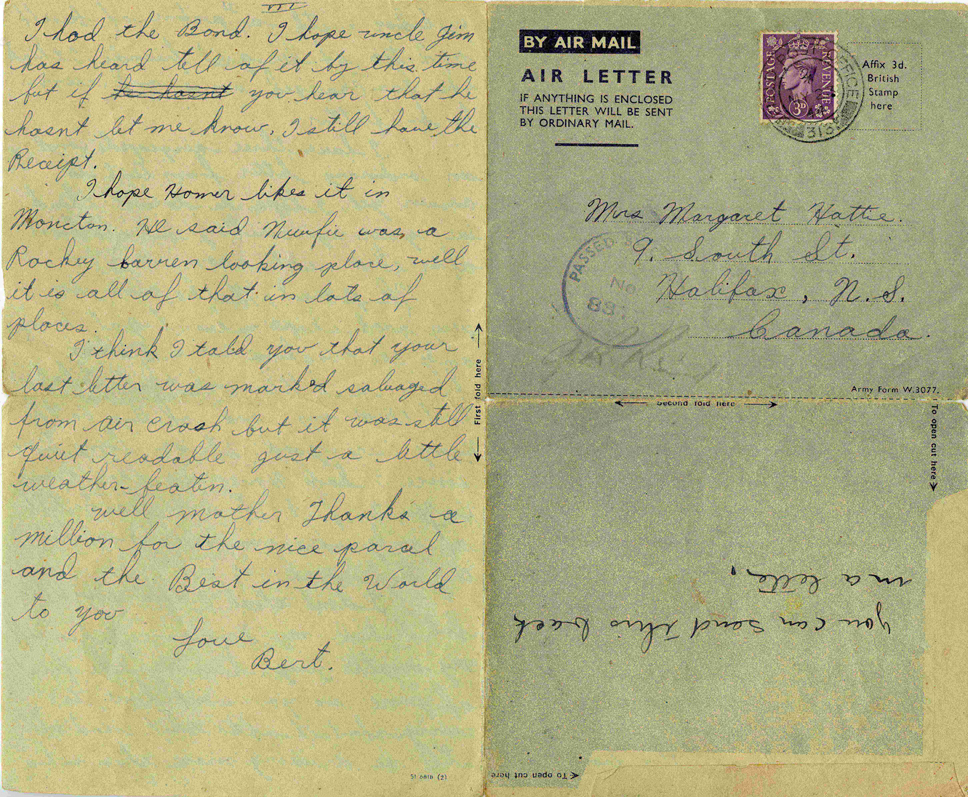 III
I had the Bond. I hope uncle Jim
has heard tell of it by this time
but if he hasnt you hear that he
hasnt let me know, I still have the
Receipt.
I hope Homer likes it in
Moncton. He said Nuwfie was, a
Rockey barren looking place, well
it is all of that in lots of
places.
I think I told you that your
last letter was marked salvaged
from air crash but it was still
quiet readable just a little
weather-beatin.
well mother Thanks a
million for the nice parcel
and the Best in the World
to you
Love
Bert.
First fold here
51-6616 (2)
BY AIR MAIL
AIR LETTER
IF ANYTHING IS ENCLOSED
THIS LETTER WILL BE SENT
BY ORDINARY MAIL.
POSTAGE REVENUE
3D
OFFICE
313
Affix 3d.
British
Stamp
here
Mrs Margaret Hattie.
9. South St.
Halifax, N.S.
Canada.
PASSED
No
Army Form W.3077.
Second fold here
To open cut here
you can send this back
in a letter.
To open cut here